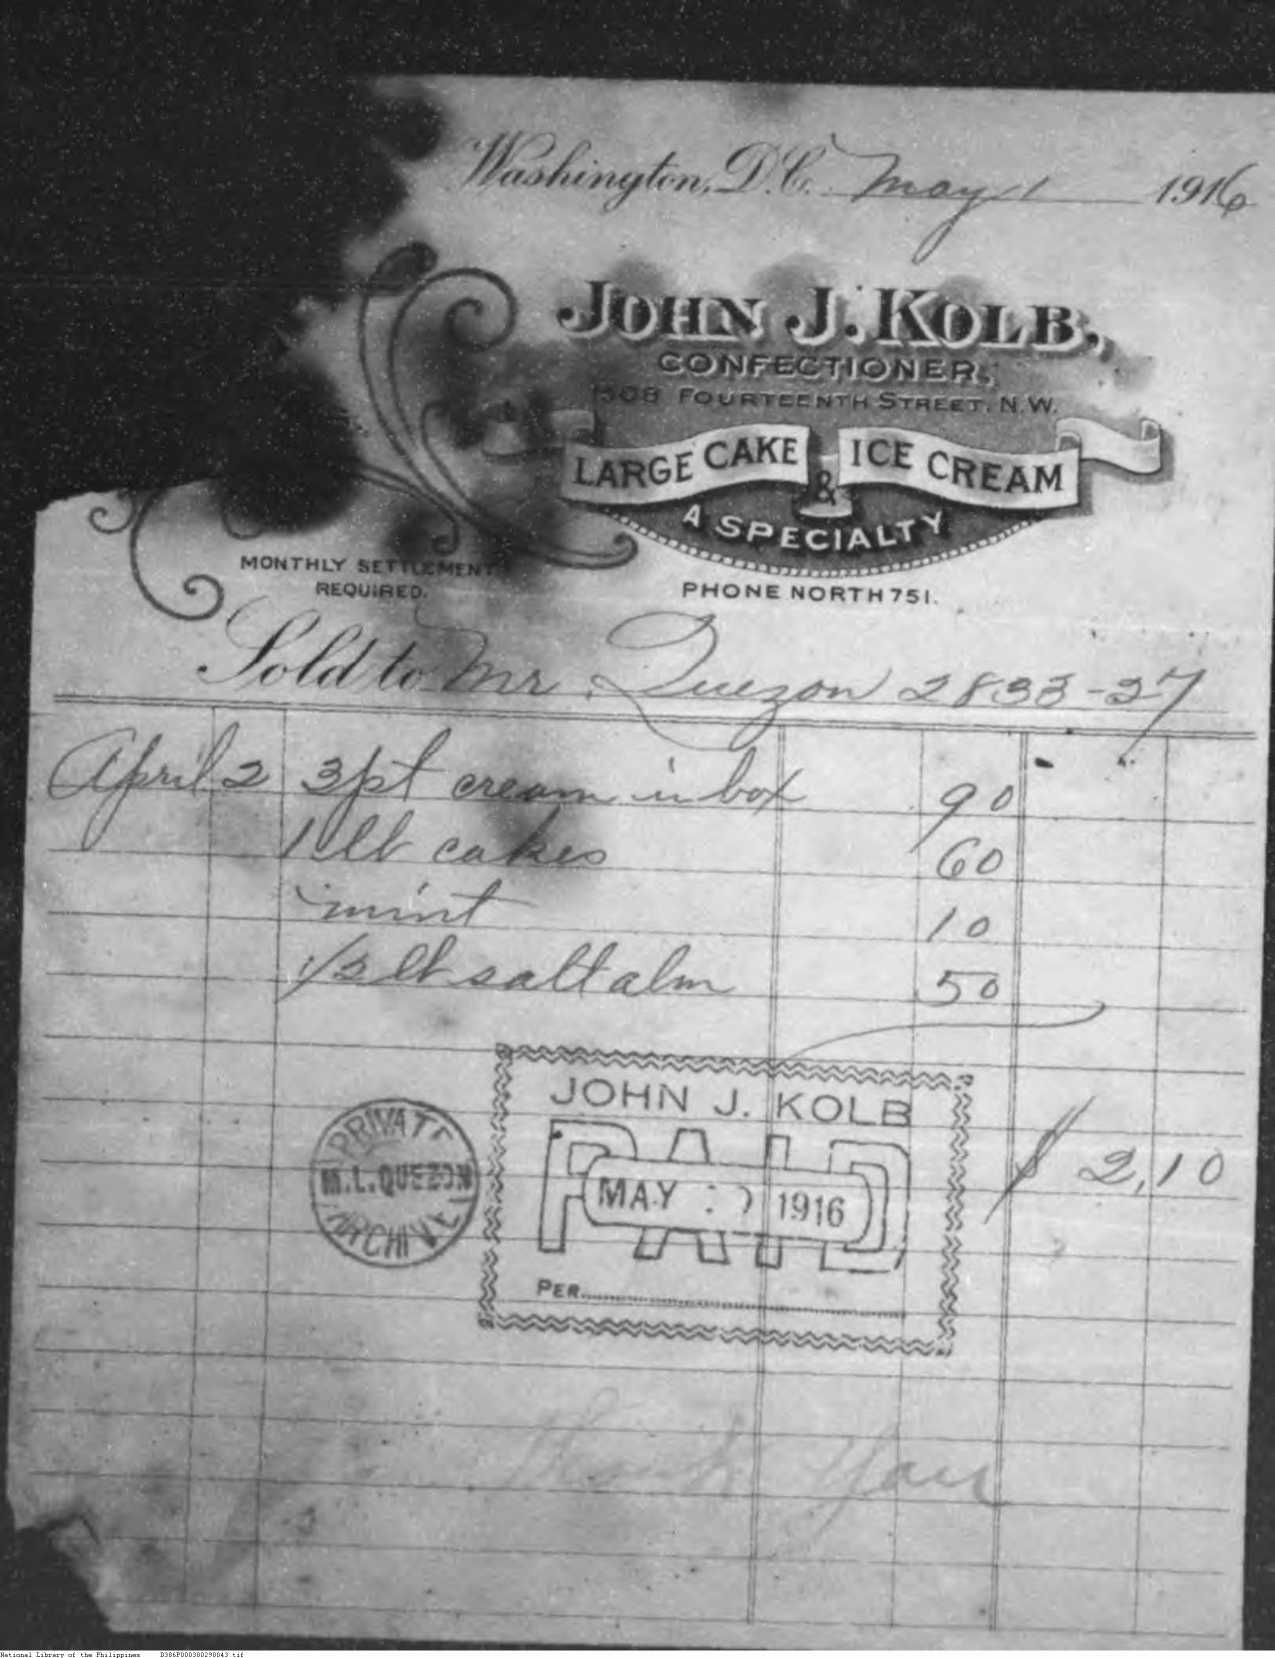 Washington, D.C. May 1 1916
JOHN J. KOLB,
CONFECTIONER,
1308 FOURTEENTH STREET, N.W.
LARGE CAKE & ICE CREAM
A SPECIALTY
MONTHLY SETTLEMENT
REQUIRED.
PHONE NORTH 751.
Sold to Mr. Quezon 2833-27
April 2 3 pt cream in box 90
1 lb cakes 60
mint 10
1/2 lb salt alm 50
JOHN J. KOLB
PAID
MAY 1916
PER
$ 2,10
PRIVATE
M.L.QUEZON
ARCHIVE
Thank You
National Library of the Philippines D386P000300298043.tif